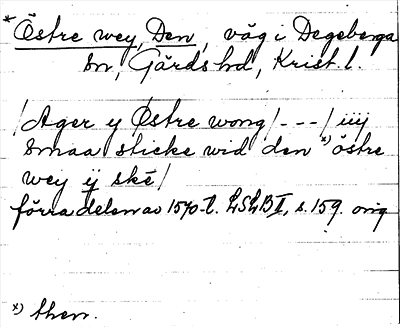 * Östre wey, Den, väg i Degeberga
sn, Gärds hd, Krist. l.
/Ager y Østre wong/---/iiij
smaa sticke wid den *) östre
wey ij ske/
förra delen av 1570-t. LSLB II, s. 159. orig
*) then.